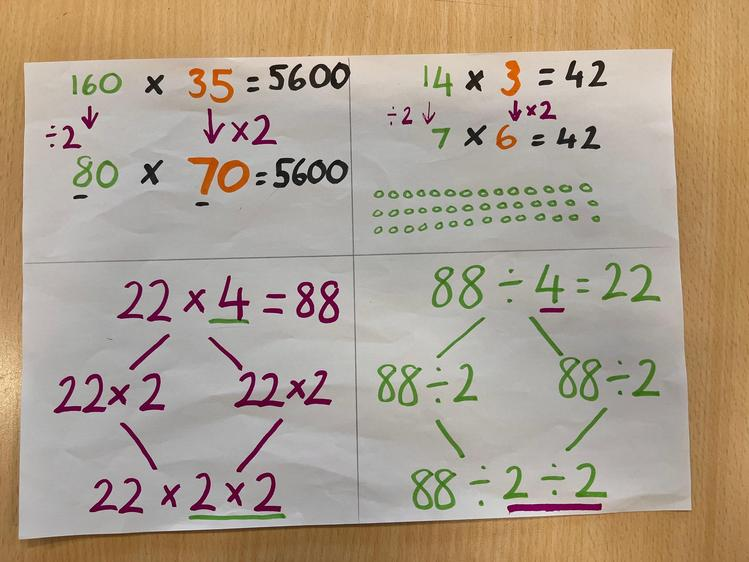 160 × 35 = 5600
÷2 ×2
80 × 70 = 5600
14 × 3 = 42
÷2 ×2
7 × 6 = 42
22 × 4 = 88
22×2 22×2
22 × 2 × 2
88 ÷ 4 = 22
88 ÷ 2 88 ÷ 2
88 ÷ 2 ÷ 2